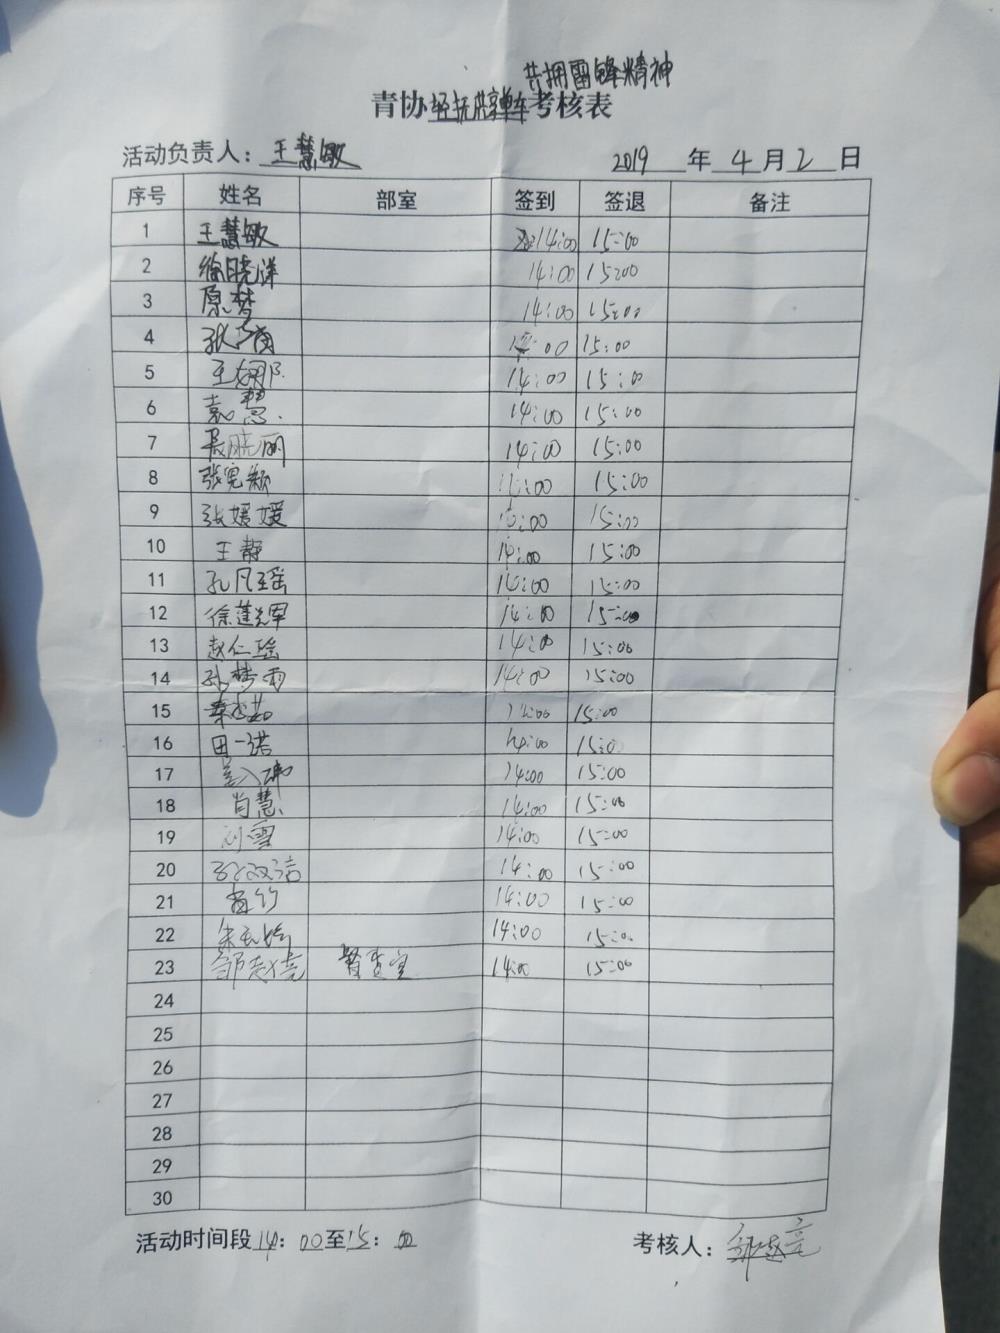 共拥雷锋精神
青协轻抚共享单车考核表
活动负责人：王慧敏 2019年4月2日
序号 姓名 部室 签到 签退 备注
1 王慧敏 14:00 15:00
2 徐晓洋 14:00 15:00
3 原梦 14:00 15:00
4 :00 15:00
5 王娜 14:00 15:00
6 袁慧 14:00 15:00
7 晓丽 14:00 15:00
8 张宪颖 14:00 15:00
9 张媛媛 14:00 15:00
10 王静 14:00 15:00
11 孔凡瑶 14:00 15:00
12 徐莲军 14:00 15:00
13 赵仁瑶 14:00 15:00
14 孙梦雨 14:00 15:00
15 14:00 15:00
16 田一诺 14:00 15:00
17 14:00 15:00
18 肖慧 14:00 15:00
19 刘雪 14:00 15:00
20 14:00 15:00
21 14:00 15:00
22 14:00 15:00
23 邹赵亮 督查室 14:00 15:00
24
25
26
27
28
29
30
活动时间段14：00至15：00 考核人：邹赵亮